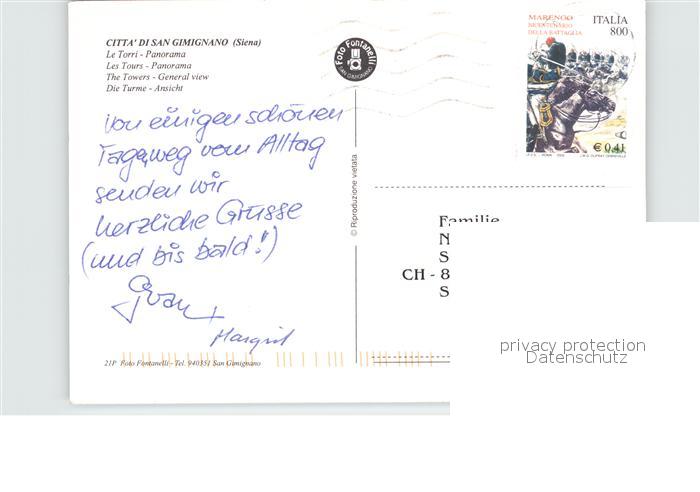 CITTA' DI SAN GIMIGNANO (Siena)
Le Torri - Panorama
Les Tours - Panorama
The Towers - General view
Die Turme - Ansicht
Von einigen schönen
Tage, weg vom Alltag
senden wir
herzliche Grüsse
(und bis bald!)
Ivan +
Margrit
21P Foto Fontanelli - Tel. 940351 San Gimignano
Foto Fontanelli
SAN GIMIGNANO
© Riproduzione vietata
MARENGO
BICENTENARIO
DELLA BATTAGLIA
ITALIA
800
€ 0,41
Familie
N
S
CH - 8
S
privacy protection
Datenschutz